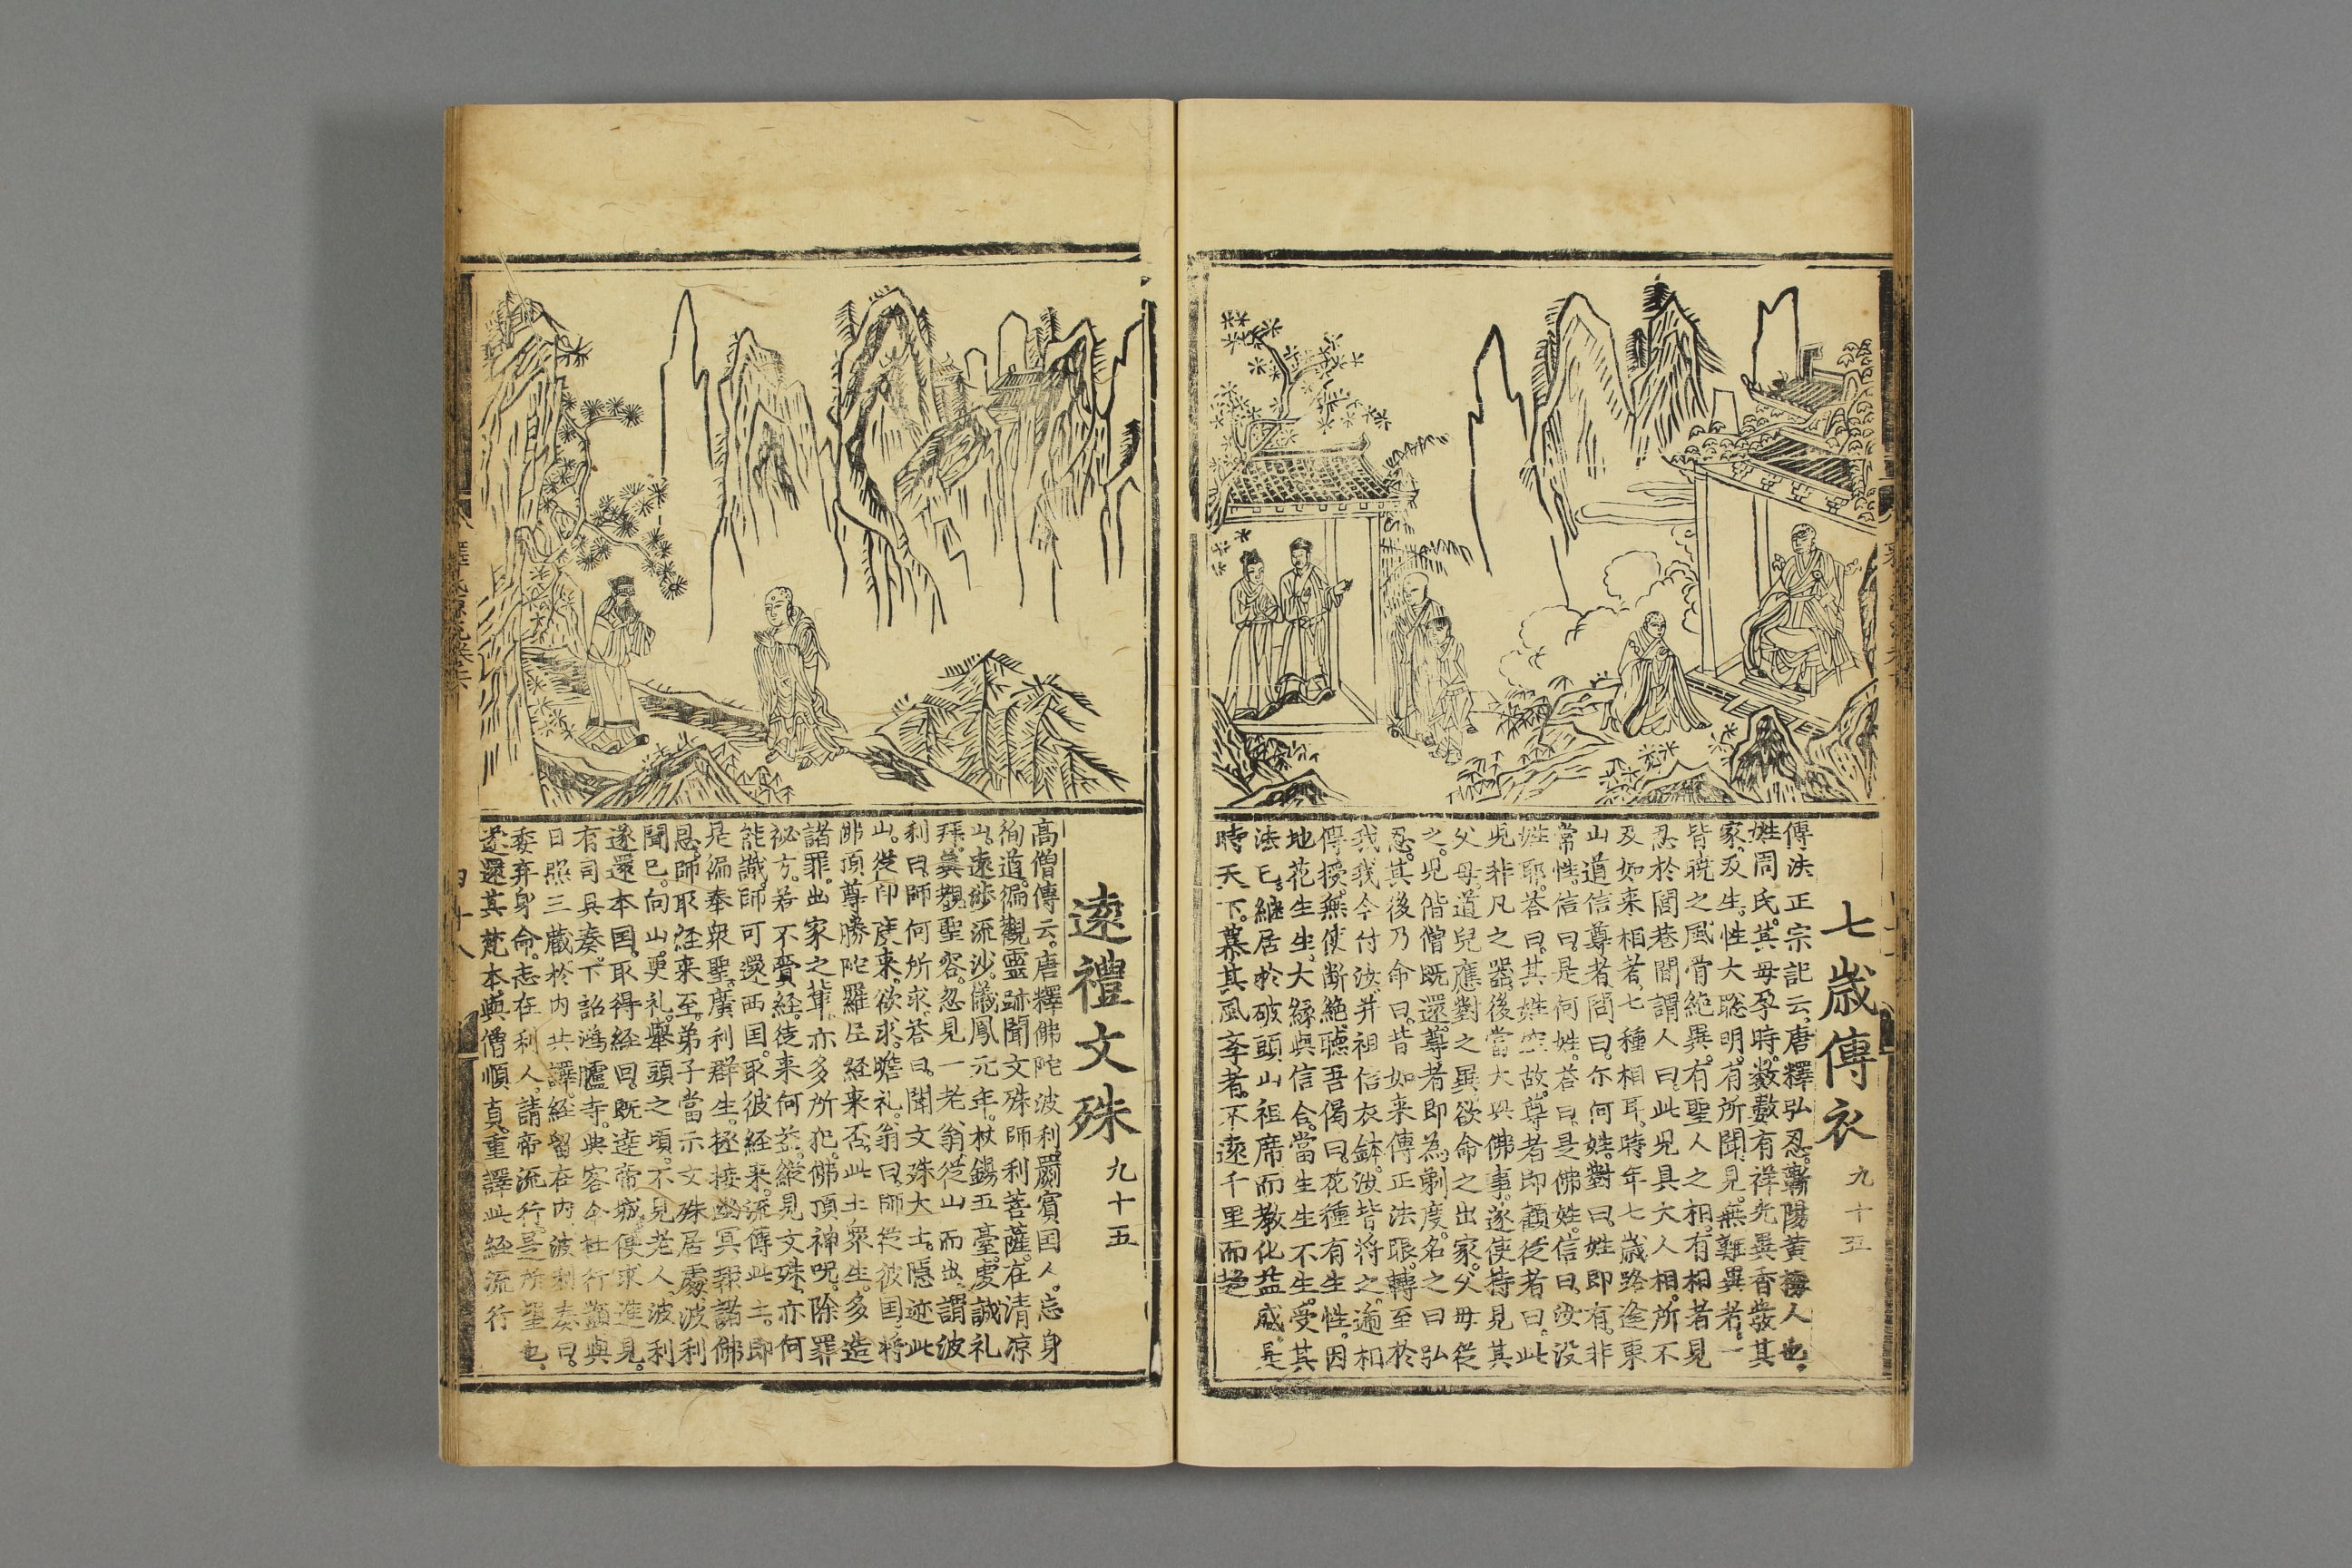 七歲傳衣 九十五
傳法正宗記云。唐釋弘忍。蘄陽黃梅人也。
姓周氏。其母孕時。數數有祥光異香發其
家。及生。性大聡明。有所聞見。無難異者。一
皆晓之。風骨絶異。有聖人之相。有相者見
忍於閭巷間謂人曰。此児具大人相。所不
及如来相者。七種相耳。時年七歲路逢東
山道信尊者問曰。尓何姓。對曰。姓即有。非
常性。信曰。是何姓。荅曰。是佛姓。信曰。汝没
姓耶。荅曰。其姓空故。尊者即顧従者曰。此
児非凡之器。後當大興佛事。遂使持見其
父母。道兒應對之異。欲命之出家。父母従
之。児偕僧既還。尊者即為剃度。名之曰弘
忍。其後乃命曰。昔如来傳正法眼。轉至於
我。我今付汝。并祖信衣鉢。汝皆将之。逓相
傳授。無使断絶。聴吾偈曰。花種有生性。因
地花生生。大縁與信合。當生生不生。受其
法已。継居於破頭山祖席而教化益盛。是
時天下。慕其風。斈者。不遠千里而趍
遠禮文殊 九十五
高僧傳云。唐釋佛陀波利。罽賓国人。忘身
徇道。徧觀靈跡聞文殊師利菩薩。在清凉
山。遠渉流沙。儀鳳元年。杖錫五臺。虔誠礼
拜。兾覩聖容。忽見一老翁。従山而出。謂波
利曰。師何所求。荅曰。聞文殊大士。隠迹此
山。従印度来。欲求瞻礼。翁曰。師従彼国。将
佛頂尊勝陀羅尼経来否。此土衆生。多造
諸罪。出家之軰。亦多所犯。佛頂神呪。除罪
祕方。若不賷経。徒来何益。縦見文殊。亦何
能識。師可還西国。取彼経来。流傳此土。即
是徧奉衆聖。廣利群生。拯接幽冥。報諸佛
恩。師取経来至。弟子當示文殊居處。波利
聞已。向山更礼。舉頭之頃。不見老人。波利
遂還本国。取得経回。既達帝城。便求進見。
有司具奏。下詔鴻臚寺。典客令杜行顗與
日照三蔵。於内共譯。経留在内。波利奏曰。
委弃身命。志在利人。請帝流行。是所望也。
遂還其梵本。與僧順貞。重譯此経流行
四十八